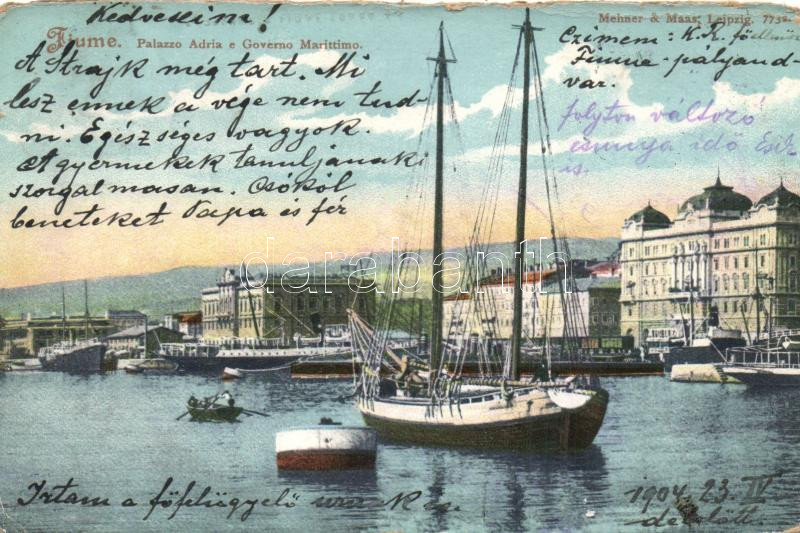 Kedveseim!
Fiume. Palazzo Adria e Governo Marittimo.
Mehner & Maas, Leipzig. 773
A Strajk még tart. Mi
lesz ennek a vége nem tud-
ni. Egészséges vagyok.
A gyermekek tanuljanak
szorgalmasan. Csókól
beneteket Papa és fér
Czimem: K.K.
Fiume-pályaud-
var.
folyton változó
csunya idő
is.
darabanth
Irtam a főfelügyelő
1904. 23. IV
délelött.